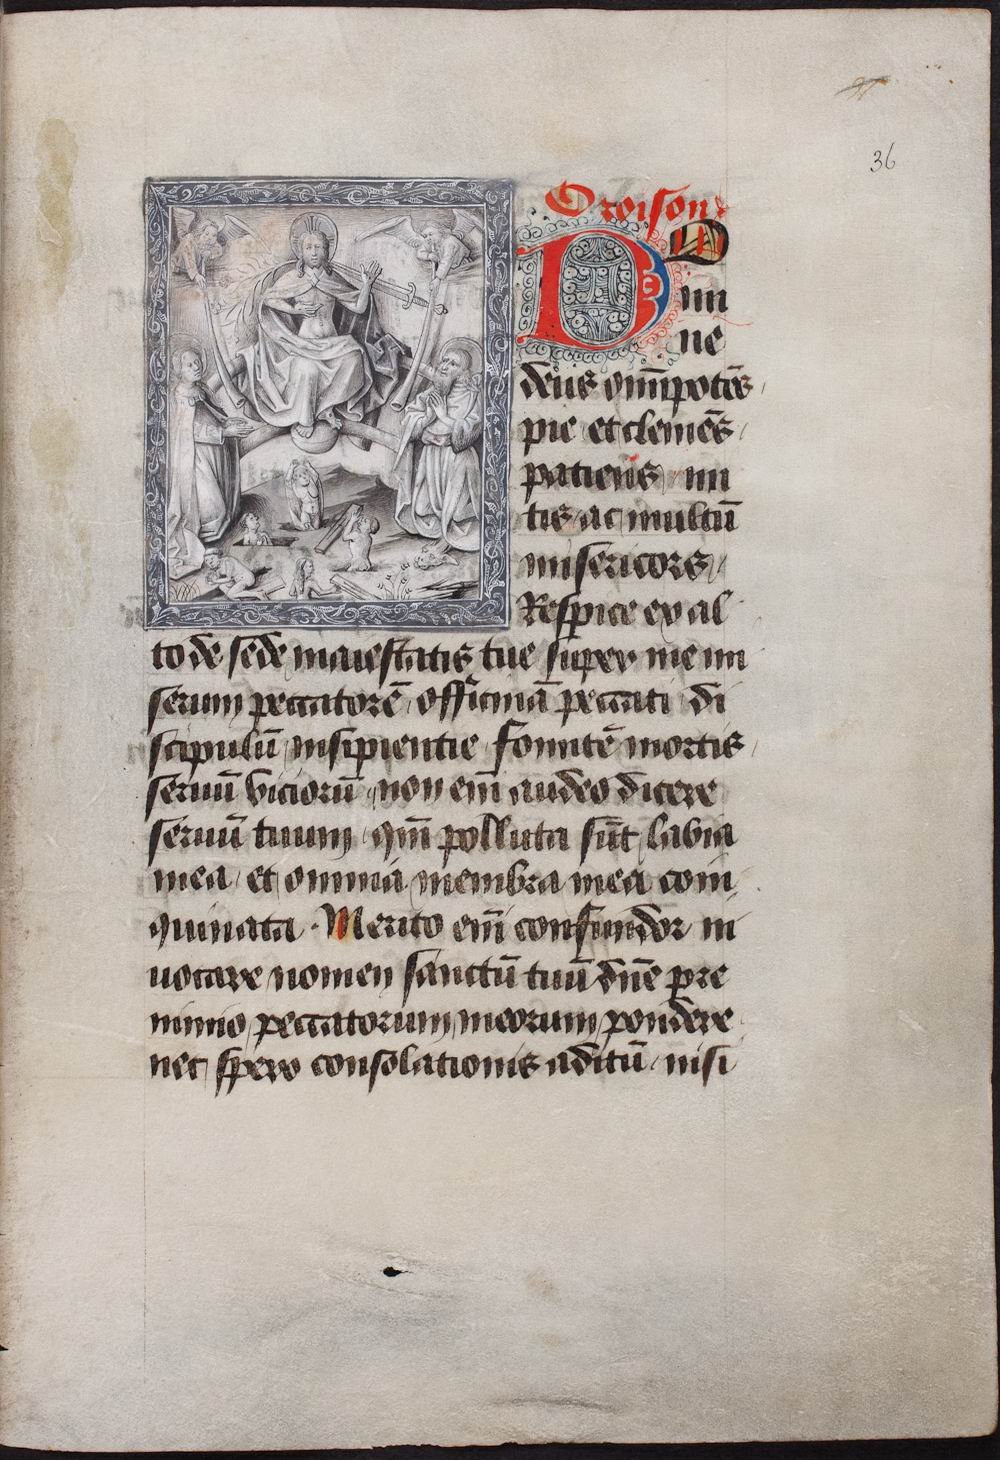 36
Oroison
DO
mi
ne
deus om̄ipotēs
pie et clemēs
patiens mi
tis ac multū
misericors
Respice ex al
to de sede maiestatis tue super me mi
serum peccatorē officinā peccati di
scipulū insipientie fomitē mortis
seruū viciorū non em̄ audeo dicere
seruū tuum qm̄ polluta sūt labia
mea et omnia membra mea coin
quinata. Merito em̄ confundor in
uocare nomen sanctū tuū dn̄e pre
nimio peccatorum meorum pondere
nec spero consolationis aditū nisi